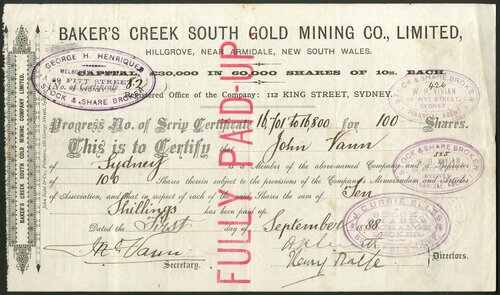 BAKER'S CREEK SOUTH GOLD MINING CO., LIMITED,
HILLGROVE, NEAR ARMIDALE, NEW SOUTH WALES.
CAPITAL, £30,000 IN 60,000 SHARES OF 10s. EACH.
No. of Certificate 82
Registered Office of the Company: 112 KING STREET, SYDNEY.
Progress No. of Scrip Certificate 16,701 to 16,800 for 100 Shares.
This is to Certify that John Vann
of Sydney is a Member of the above-named Company and Proprietor
of 100 Shares therein subject to the provisions of the Company's Memorandum and Articles
of Association, and that in respect of each of the said Shares the sum of Ten
Shillings has been paid up.
Dated the First day of September 1888.
Secretary.
Directors.
FULLY PAID-UP
GEORGE H. HENRIQUES
STOCK & SHARE BROKER
PITT STREET
STOCK & SHARE BROKER
W. H. VIVIAN
PITT STREET
SYDNEY
426
STOCK & SHARE BROKER
SYDNEY
J. CURRIE ELLES
STOCK
BROKER
BAKER'S CREEK SOUTH GOLD MINING COMPANY LIMITED.